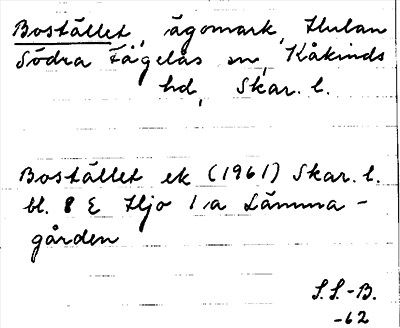 Bostället, ägomark, Hulan
Södra Fågelås sn, Kåkinds
hd, Skar. l.
Bostället ek (1961) Skar. l.
bl. 8 E Hjo 1a Lämma-
gården
S.S.-B.
-62